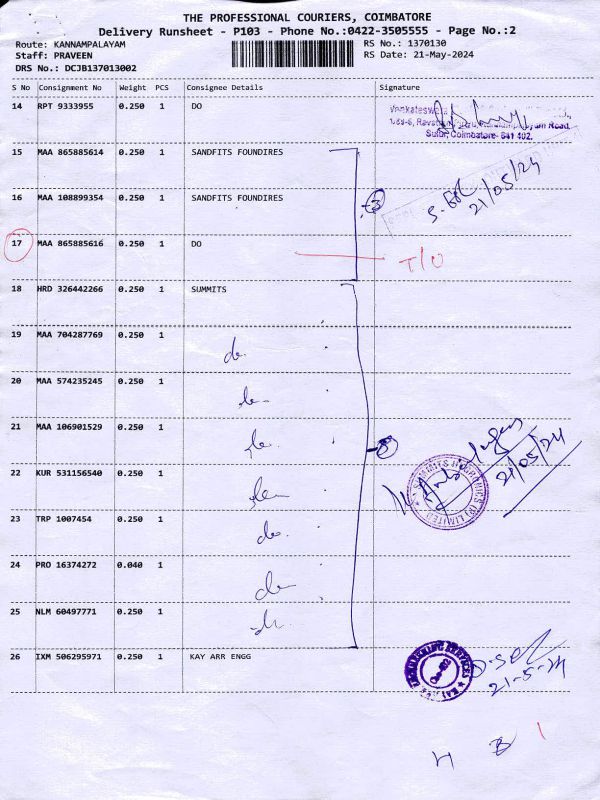 THE PROFESSIONAL COURIERS, COIMBATORE
Delivery Runsheet - P103 - Phone No.:0422-3505555 - Page No.:2
Route: KANNAMPALAYAM RS No.: 1370130
Staff: PRAVEEN RS Date: 21-May-2024
DRS No.: DCJB137013002
S No Consignment No Weight PCS Consignee Details Signature
14 RPT 9333955 0.250 1 DO
Venkateswara
Road,
Sulur, Coimbatore- 641 402.
15 MAA 865885614 0.250 1 SANDFITS FOUNDIRES
16 MAA 108899354 0.250 1 SANDFITS FOUNDIRES
3
21/05/24
17 MAA 865885616 0.250 1 DO
T/O
18 HRD 326442266 0.250 1 SUMMITS
19 MAA 704287769 0.250 1 do.
20 MAA 574235245 0.250 1 do.
21 MAA 106901529 0.250 1 do.
8
21/05/24
22 KUR 531156540 0.250 1 do
SUMMITS (P) LIMITED
23 TRP 1007454 0.250 1 do.
24 PRO 16374272 0.040 1 do
25 NLM 60497771 0.250 1 do.
26 IXM 506295971 0.250 1 KAY ARR ENGG
21-5-24